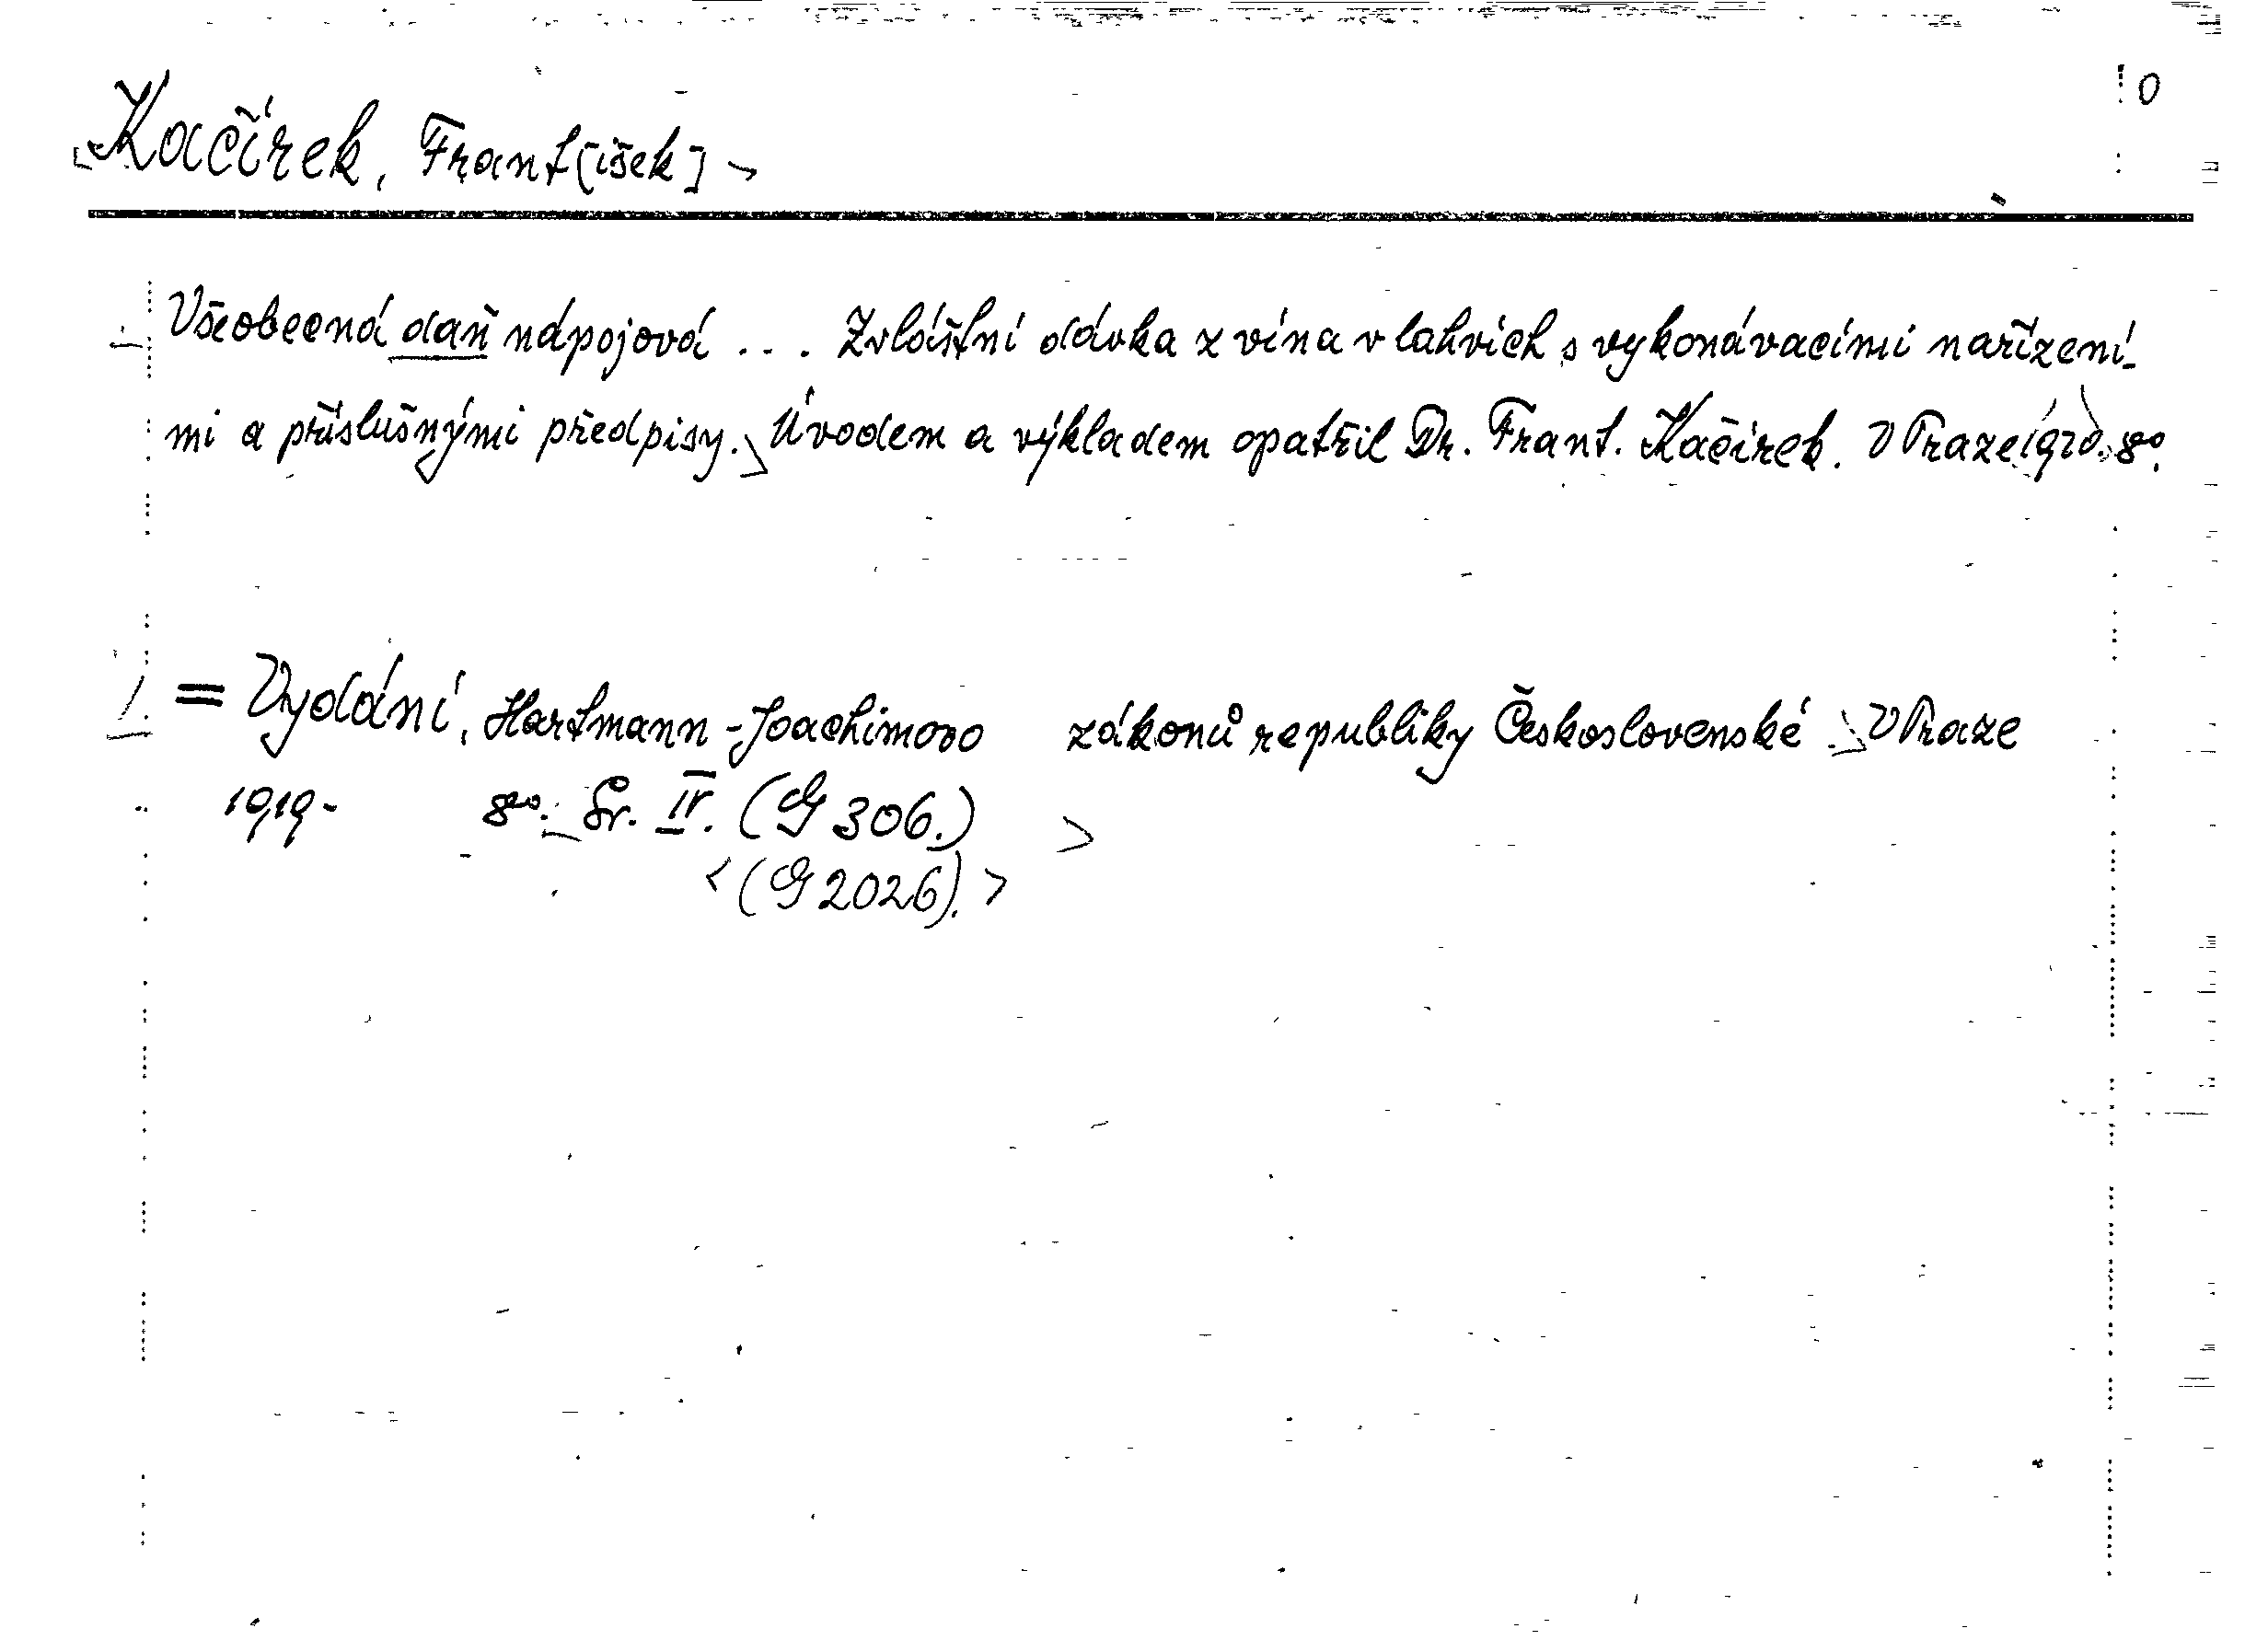 0
Kačírek, Frant[išek]
Všeobecná daň nápojová ... Zvláštní dávka z vína v lahvích s vykonávacími nařízení-
mi a příslušnými předpisy. Úvodem a výkladem opatřil Dr. Frant. Kačírek. V Praze 8⁰.
= Vydání, Hartmann-Joachimovo zákonů republiky Československé V Praze
1919- 8⁰. Sv. IV. (G 306.)
<(G 2026).>